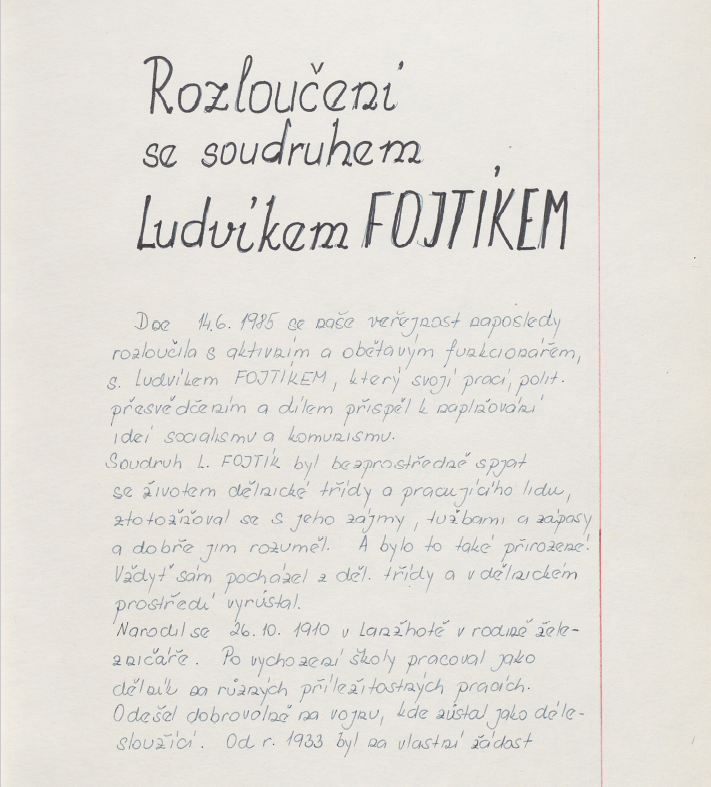 Rozloučení
se soudruhem
Ludvíkem FOJTÍKEM
Dne 14.6. 1985 se naše veřejnost naposledy
rozloučila s aktivním a obětavým funkcionářem,
s. Ludvíkem FOJTÍKEM, který svojí prací, polit.
přesvědčením a dílem přispěl k naplňování
idei socialismu a komunismu.
Soudruh L. FOJTÍK byl bezprostředně spjat
se životem dělnické třídy a pracujícího lidu,
ztotožňoval se s jeho zájmy, tužbami a zápasy
a dobře jim rozuměl. A bylo to také přirozené!
Vždyť sám pocházel z děl. třídy a v dělnickém
prostředí vyrůstal.
Narodil se 26.10. 1910 v Lanžhotě v rodině žele-
zničáře. Po vychození školy pracoval jako
dělník na různých příležitostných pracích.
Odešel dobrovolně na vojnu, kde zůstal jako déle-
sloužící. Od r. 1933 byl na vlastní žádost